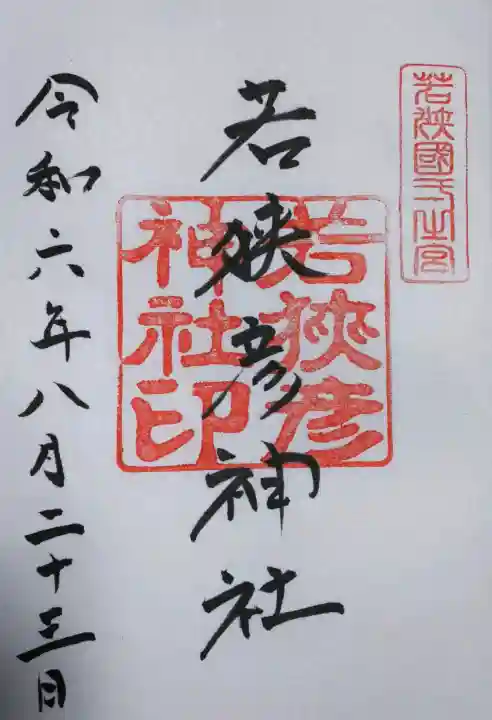 若狭國一之宮
若狭彦神社
若狹彦
神社印
令和六年八月二十三日